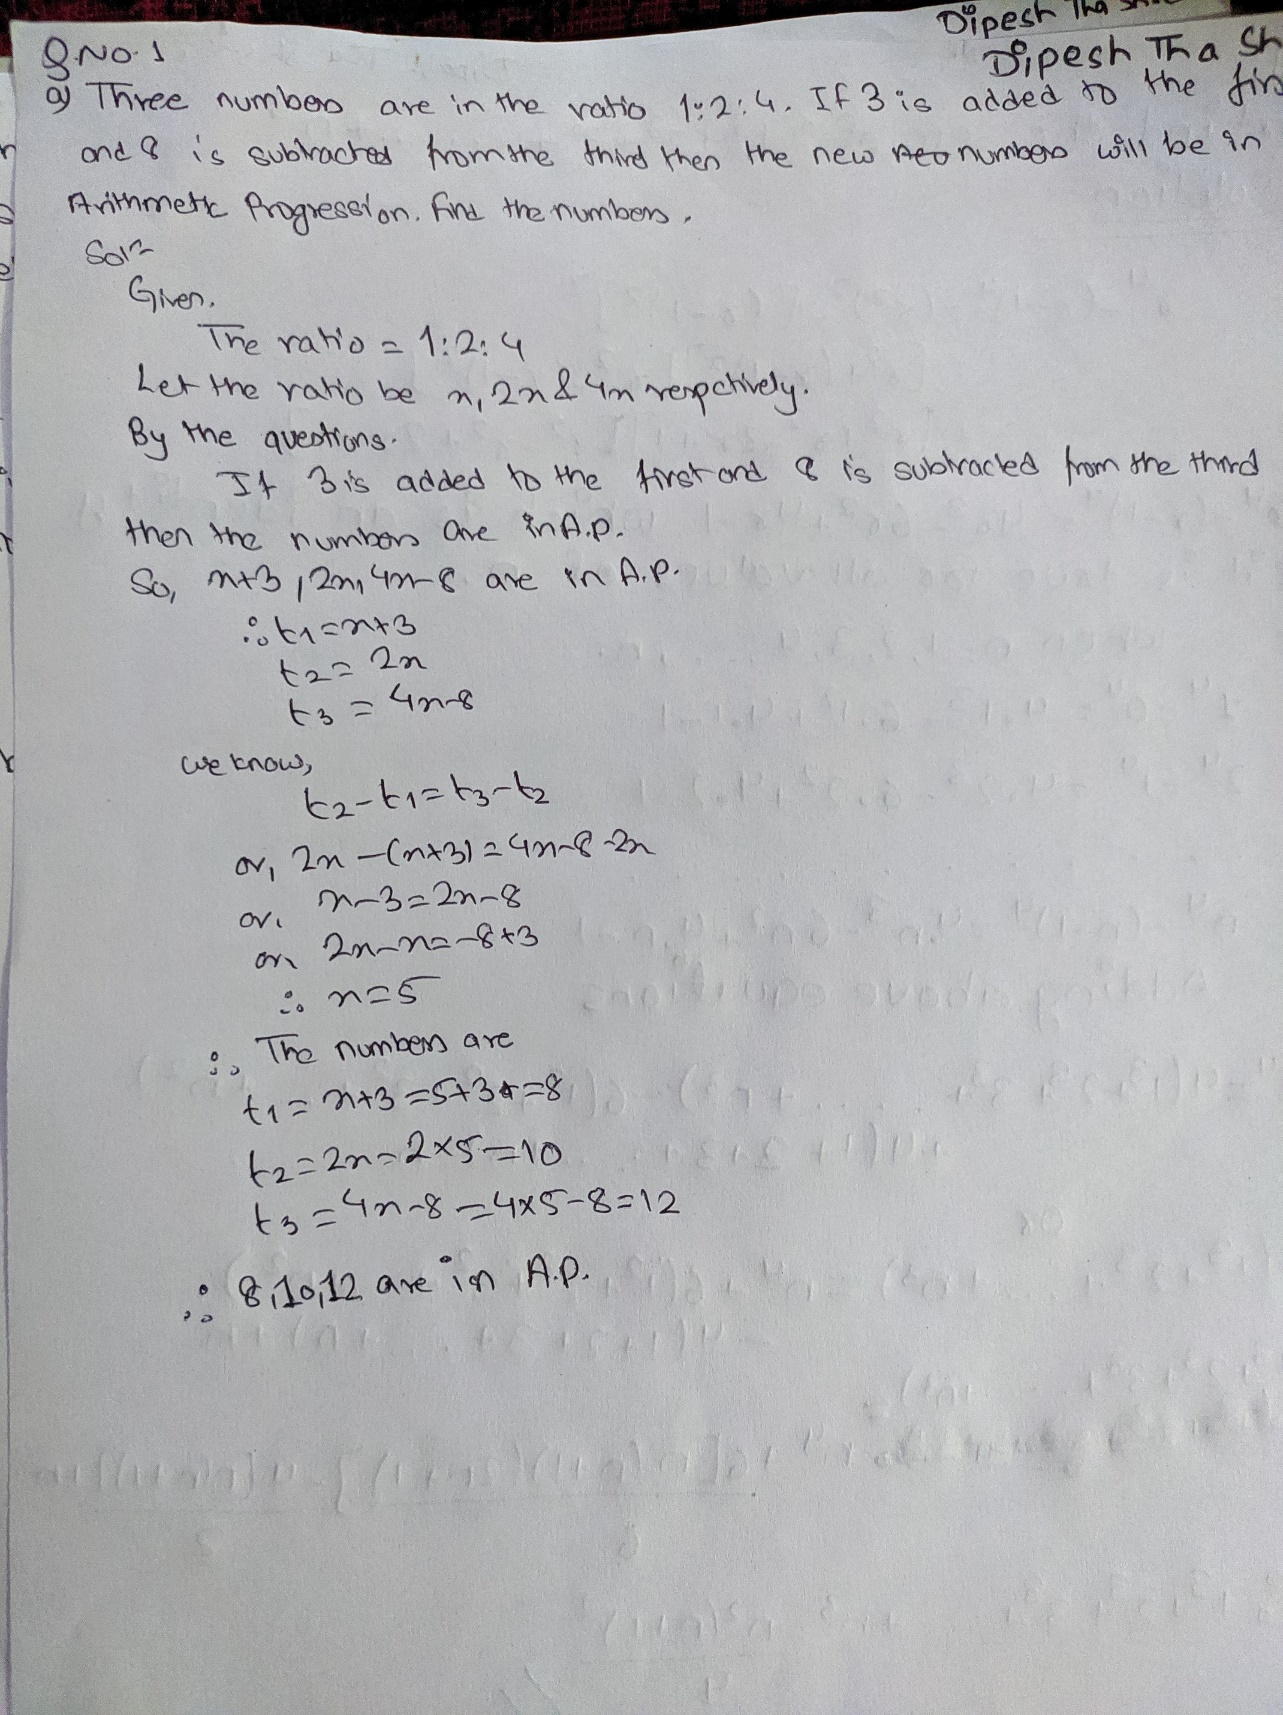 Dipesh Tha
Dipesh Tha Sh
Q.No. 1
a) Three numbers are in the ratio 1:2:4. If 3 is added to the firs
and 8 is subtracted from the third then the new numbers will be in
Arithmetic Progression. Find the numbers.
Soln
Given,
The ratio = 1:2:4
Let the ratio be x, 2x & 4x respctively.
By the questions.
If 3 is added to the first and 8 is subtracted from the third
then the numbers are in A.P.
So, x+3, 2x, 4x-8 are in A.P.
∴ t1 = x+3
t2 = 2x
t3 = 4x-8
we know,
t2-t1 = t3-t2
or, 2x-(x+3) = 4x-8-2x
or, x-3 = 2x-8
or, 2x-x = -8+3
∴ x=5
∴ The numbers are
t1 = x+3 = 5+3 = 8
t2 = 2x = 2×5 = 10
t3 = 4x-8 = 4×5-8 = 12
∴ 8,10,12 are in A.P.